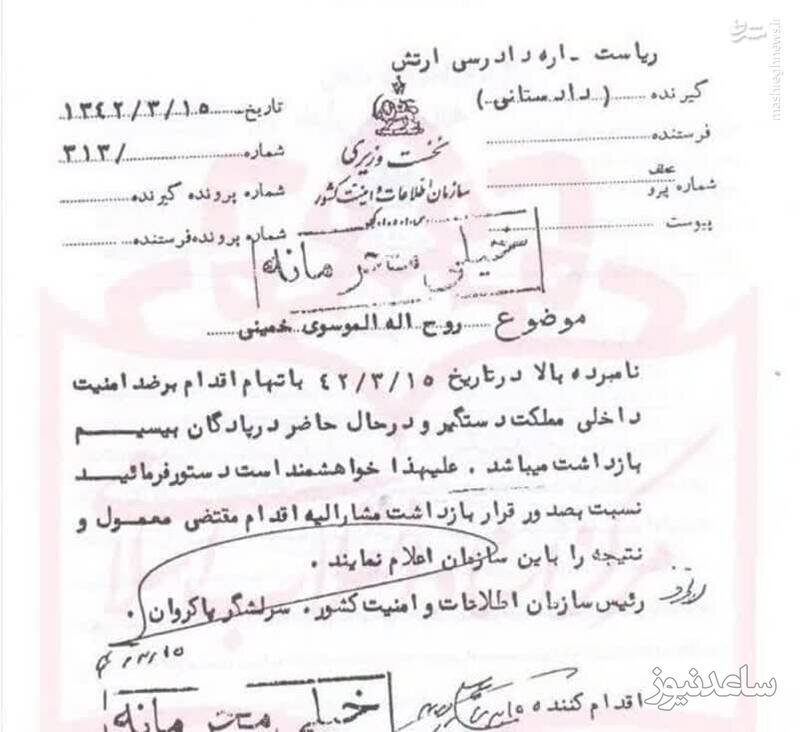 ریاست - اره دادرسی ارتش
گیرنده ( دادستانی )
فرستنده
شماره پرو
پیوست
نخست وزیری
سازمان اطلاعات و امنیت کشور
تاریخ ۱۳۴۲/۳/۱۵
شماره /۳۱۳
شماره پرونده گیرنده
شماره پرونده فرستنده
خیلی محرمانه
موضوع روح اله الموسوی خمینی
نامبرده بالا درتاریخ ۴۲/۳/۱۵ باتهام اقدام برضد امنیت
داخلی مملکت دستگیر و درحال حاضر درپادگان بیسیم
بازداشت میباشد . علیهذا خواهشمند است دستورفرمائید
نسبت بصدور قرار بازداشت مشارالیه اقدام مقتضی معمول و
نتیجه را باین سازمان اعلام نمایند .
رئیس سازمان اطلاعات و امنیت کشور . سرلشگر پاکروان .
اقدام کننده
خیلی محرمانه
مشرق
mashreghnews.ir
ساعدنیوز